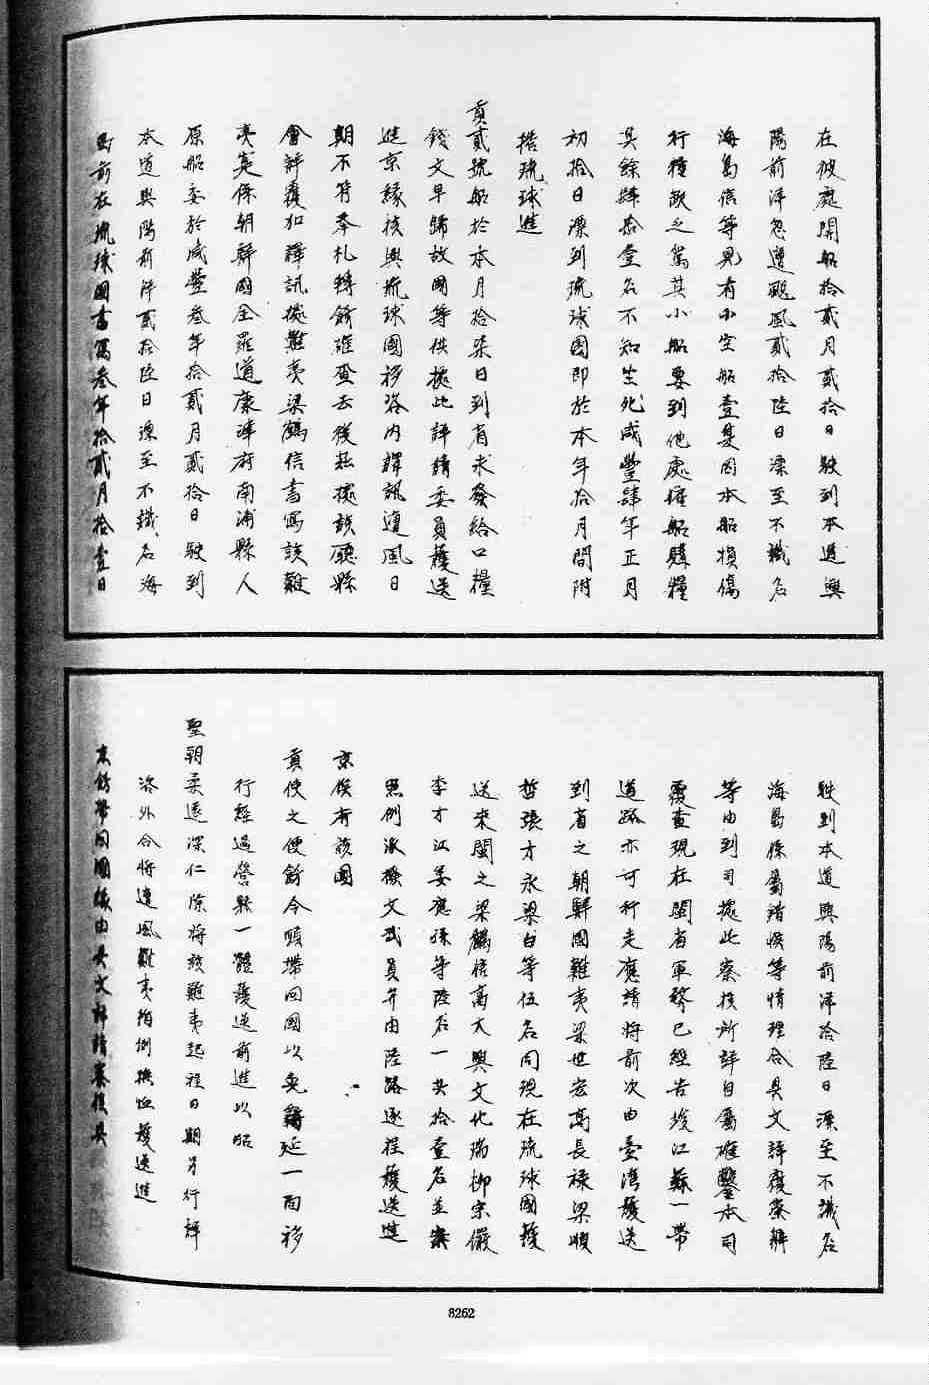 在彼處開船拾貳月貳拾日駛到本道興
陽前洋忽遭颶風貳拾陸日漂至不識名
海島信等見有小空船壹隻因本船損傷
行種敵之駕其小船要到他處催船購糧
其餘肆拾壹名不知生死咸豐肆年正月
初拾日漂到琉球國即於本年拾月間附
搭琉球進
貢貳號船於本月拾柒日到省求發給口糧
錢文早歸故國等供據此詳請委員護送
進京緣核與琉球國移咨內譯訊遭風日
期不符奉札轉飭確查去後茲據該廳縣
會詳覆加譯訊據難夷梁鶴信書寫該難
夷寔係朝鮮國全羅道康津府南浦縣人
原船委於咸豐叁年拾貳月貳拾日駛到
本道興陽前洋貳拾陸日漂至不識名海
島前在琉球國書寫叁年拾貳月拾壹日
駛到本道興陽前洋拾陸日漂至不識名
海島係屬錯悞等情理合具文詳覆察辦
等由到司據此察核所詳自屬確鑿本司
覆查現在閩省軍務已經告竣江蘇一帶
道路亦可行走應請將前次由臺灣護送
到省之朝鮮國難夷梁世宏高長祿梁順
哲張才永梁白等伍名同現在琉球國護
送來閩之梁鶴信高大興文化瑞柳宗儼
李才江姜應孫等陸名一共拾壹名並案
照例派撥文武員弁由陸路逐程護送進
京俟有該國
貢使之便飭令順帶回國以免羈延一面移
行經過營縣一體護送前進以昭
聖朝柔遠深仁除將該難夷起程日期另行詳
咨外合將遭風難夷循例撫恤護送進
京飭帶回國緣由具文詳請察核具